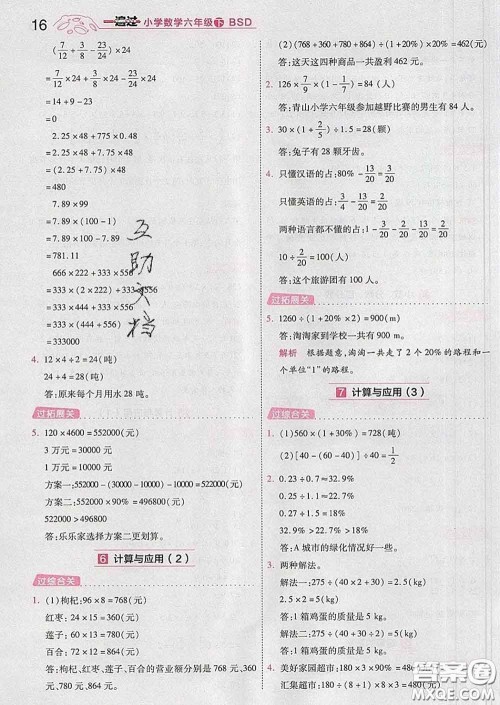 16 一遍过 小学数学六年级下 BSD
(7/12+8/12-23/24)×24
=7/12×24+8/12×24-23/24×24
=14+9-23
=0
2.25×48+775×0.48
=2.25×48+7.75×48
=480
7.89×99
=7.89×(100-1)
=7.89×100-7.89
=781.11
666×222+333×556
=333×(2×222)+333×556
=333×444+333×556
=333×(444+556)
=333000
4. 12×4÷2=24(吨)
24+4=28(吨)
答:原来每个月用水 28 吨。
过拓展关
5. 120×4600=552000(元)
3 万元=30000 元
1 万元=10000 元
方案一:552000-(30000-10000)-10000=522000(元)
方案二:552000×90%=496800(元)
522000>496800
答:乐乐家选择方案二更划算。
6 计算与应用(2)
过综合关
1. (1)枸杞:96×8=768(元)
红枣:24×15=360(元)
莲子:60×13=780(元)
百合:72×12=864(元)
答:枸杞、红枣、莲子、百合的营业额分别是 768 元、360 元、780 元、864 元。
(2)(768+360+780+864)÷(1+20%)×20%=462(元)
答:这天这四种商品一共盈利 462 元。
2. 126×7/9×(1-1/7)=84(人)
答:青山小学六年级参加越野比赛的男生有 84 人。
3. 30×(1+2/5)÷1.5=28(颗)
答:兔子有 28 颗牙齿。
4. 只懂汉语的占:80%-13/20=3/20
只懂英语的占:3/4-13/20=1/10
两种语言都不懂的占:1-13/20-3/20-1/10=1/10
10÷2/20=100(人)
答:这个旅游团有 100 人。
过拓展关
5. 1260÷(1+20%×2)=900(m)
答:淘淘家到学校一共有 900 m。
解析 根据题意,淘淘一共走了 2 个 20%的路程和一个单位“1”的路程。
7 计算与应用(3)
过综合关
1. (1)560×(1+30%)=728(吨)
(2)[40-(60-40)]÷40=1/2
2. 0.23÷0.7≈32.9%
0.27÷1.2=22.5%
0.28÷1.5≈18.7%
32.9%>22.5%>18.7%
答:A 城市的绿化情况好一些。
3. 两种解法。
解法一:275÷(40×2+30)=2.5(元)
275÷2.5÷(20+2)=5(kg)
答:1 箱鸡蛋的质量是 5 kg。
解法二:275÷(40+30÷2)=5(kg)
答:1 箱鸡蛋的质量是 5 kg。
4. 美好家园超市:180×3×90%=486(元)
汇集超市:180×(3-1)÷3×4=480(元)
互
助
文
档
答案圈
MXQE.COM